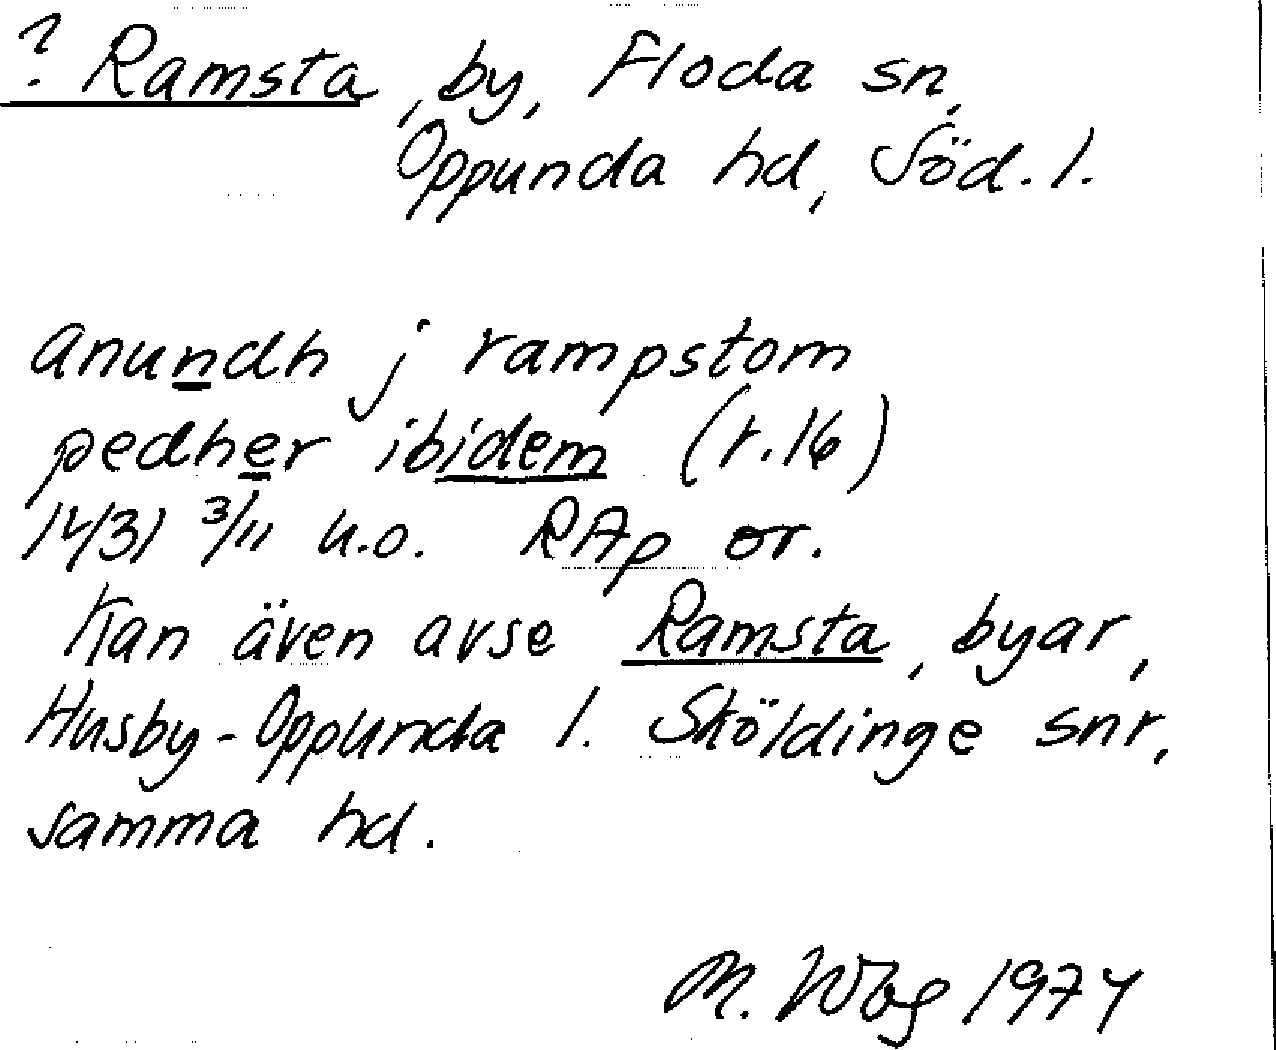 ? Ramsta, by, Floda sn,
Oppunda hd, Söd. l.
anundh j rampstom
pedher ibidem (r. 16)
1431 3/11 u.o. RAp or.
Kan även avse Ramsta, byar,
Husby-Oppunda l. Sköldinge snr,
samma hd.
M. Wbg 1974